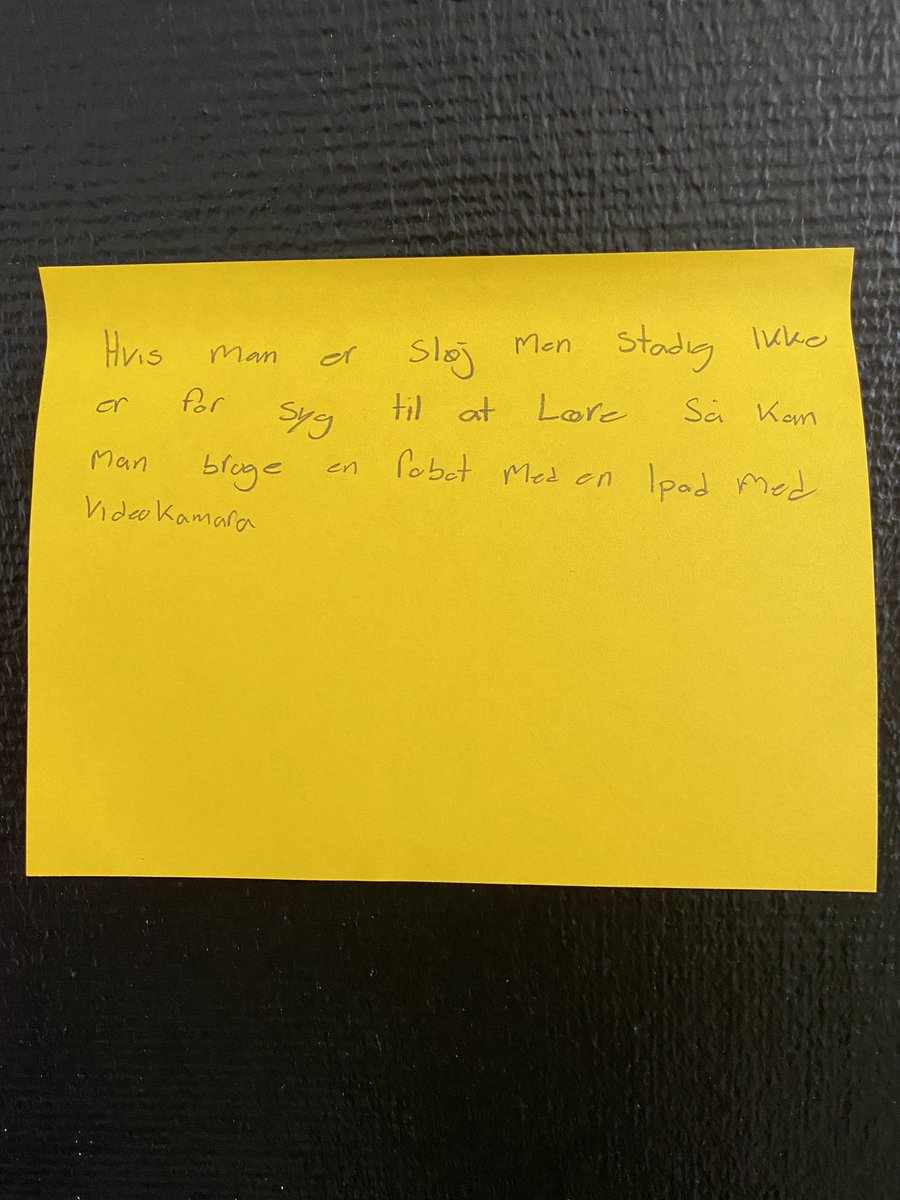 Hvis man er sløj men stadig ikke
er for syg til at Lære Så kan
man bruge en robot med en Ipad med
Videokamara